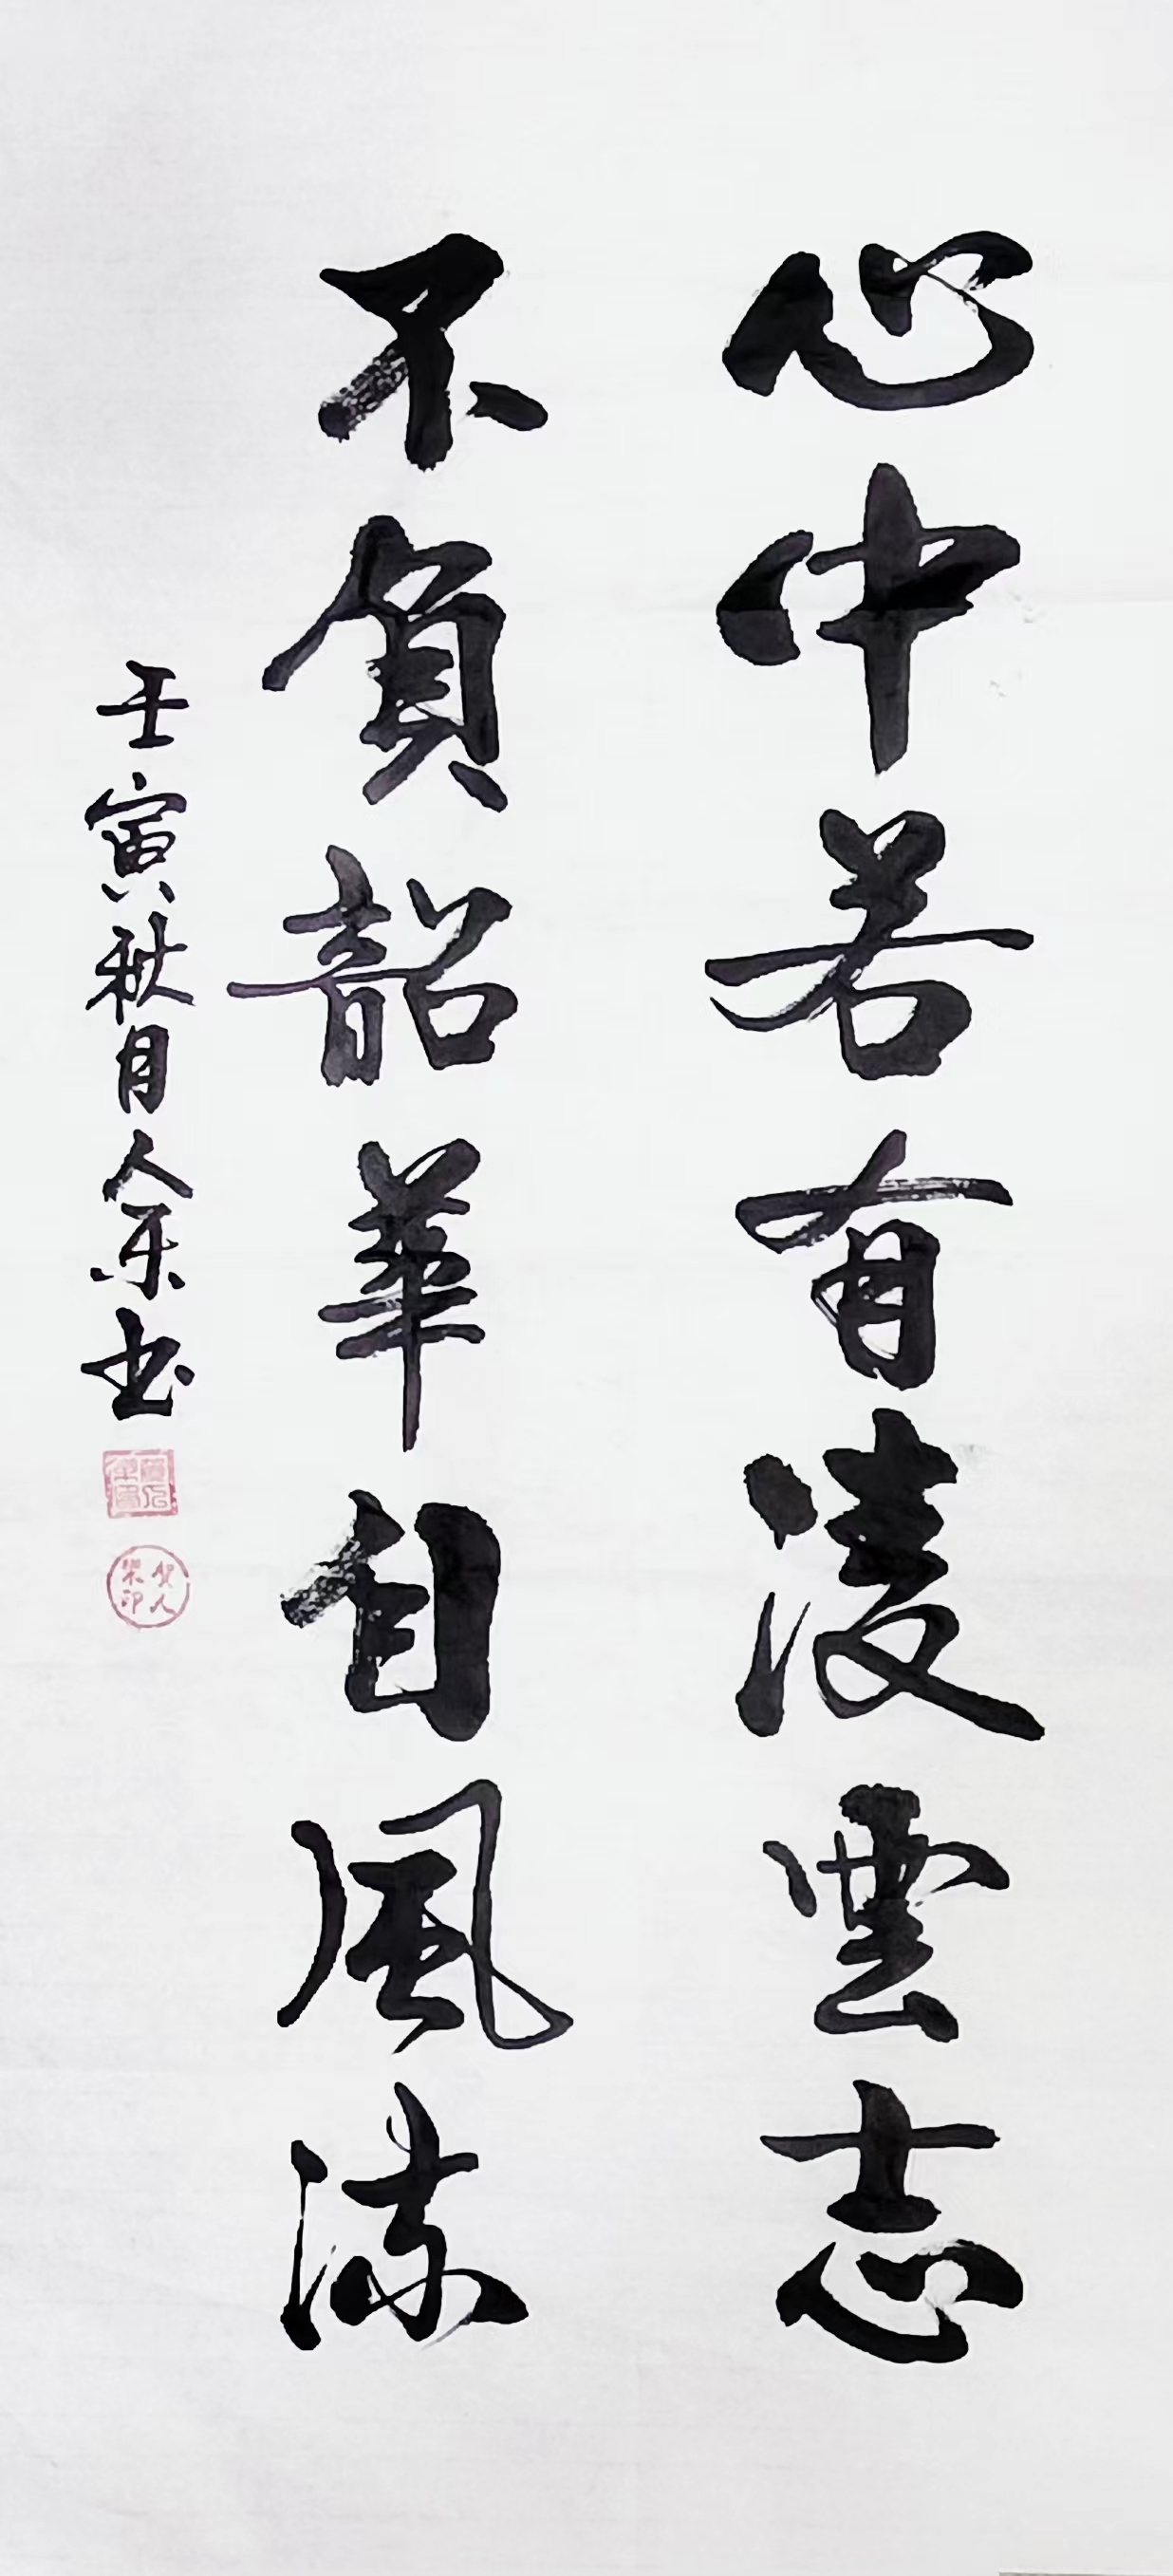 心中若有凌雲志
不負韶華自風流
壬寅秋月人樂书
賀人樂印